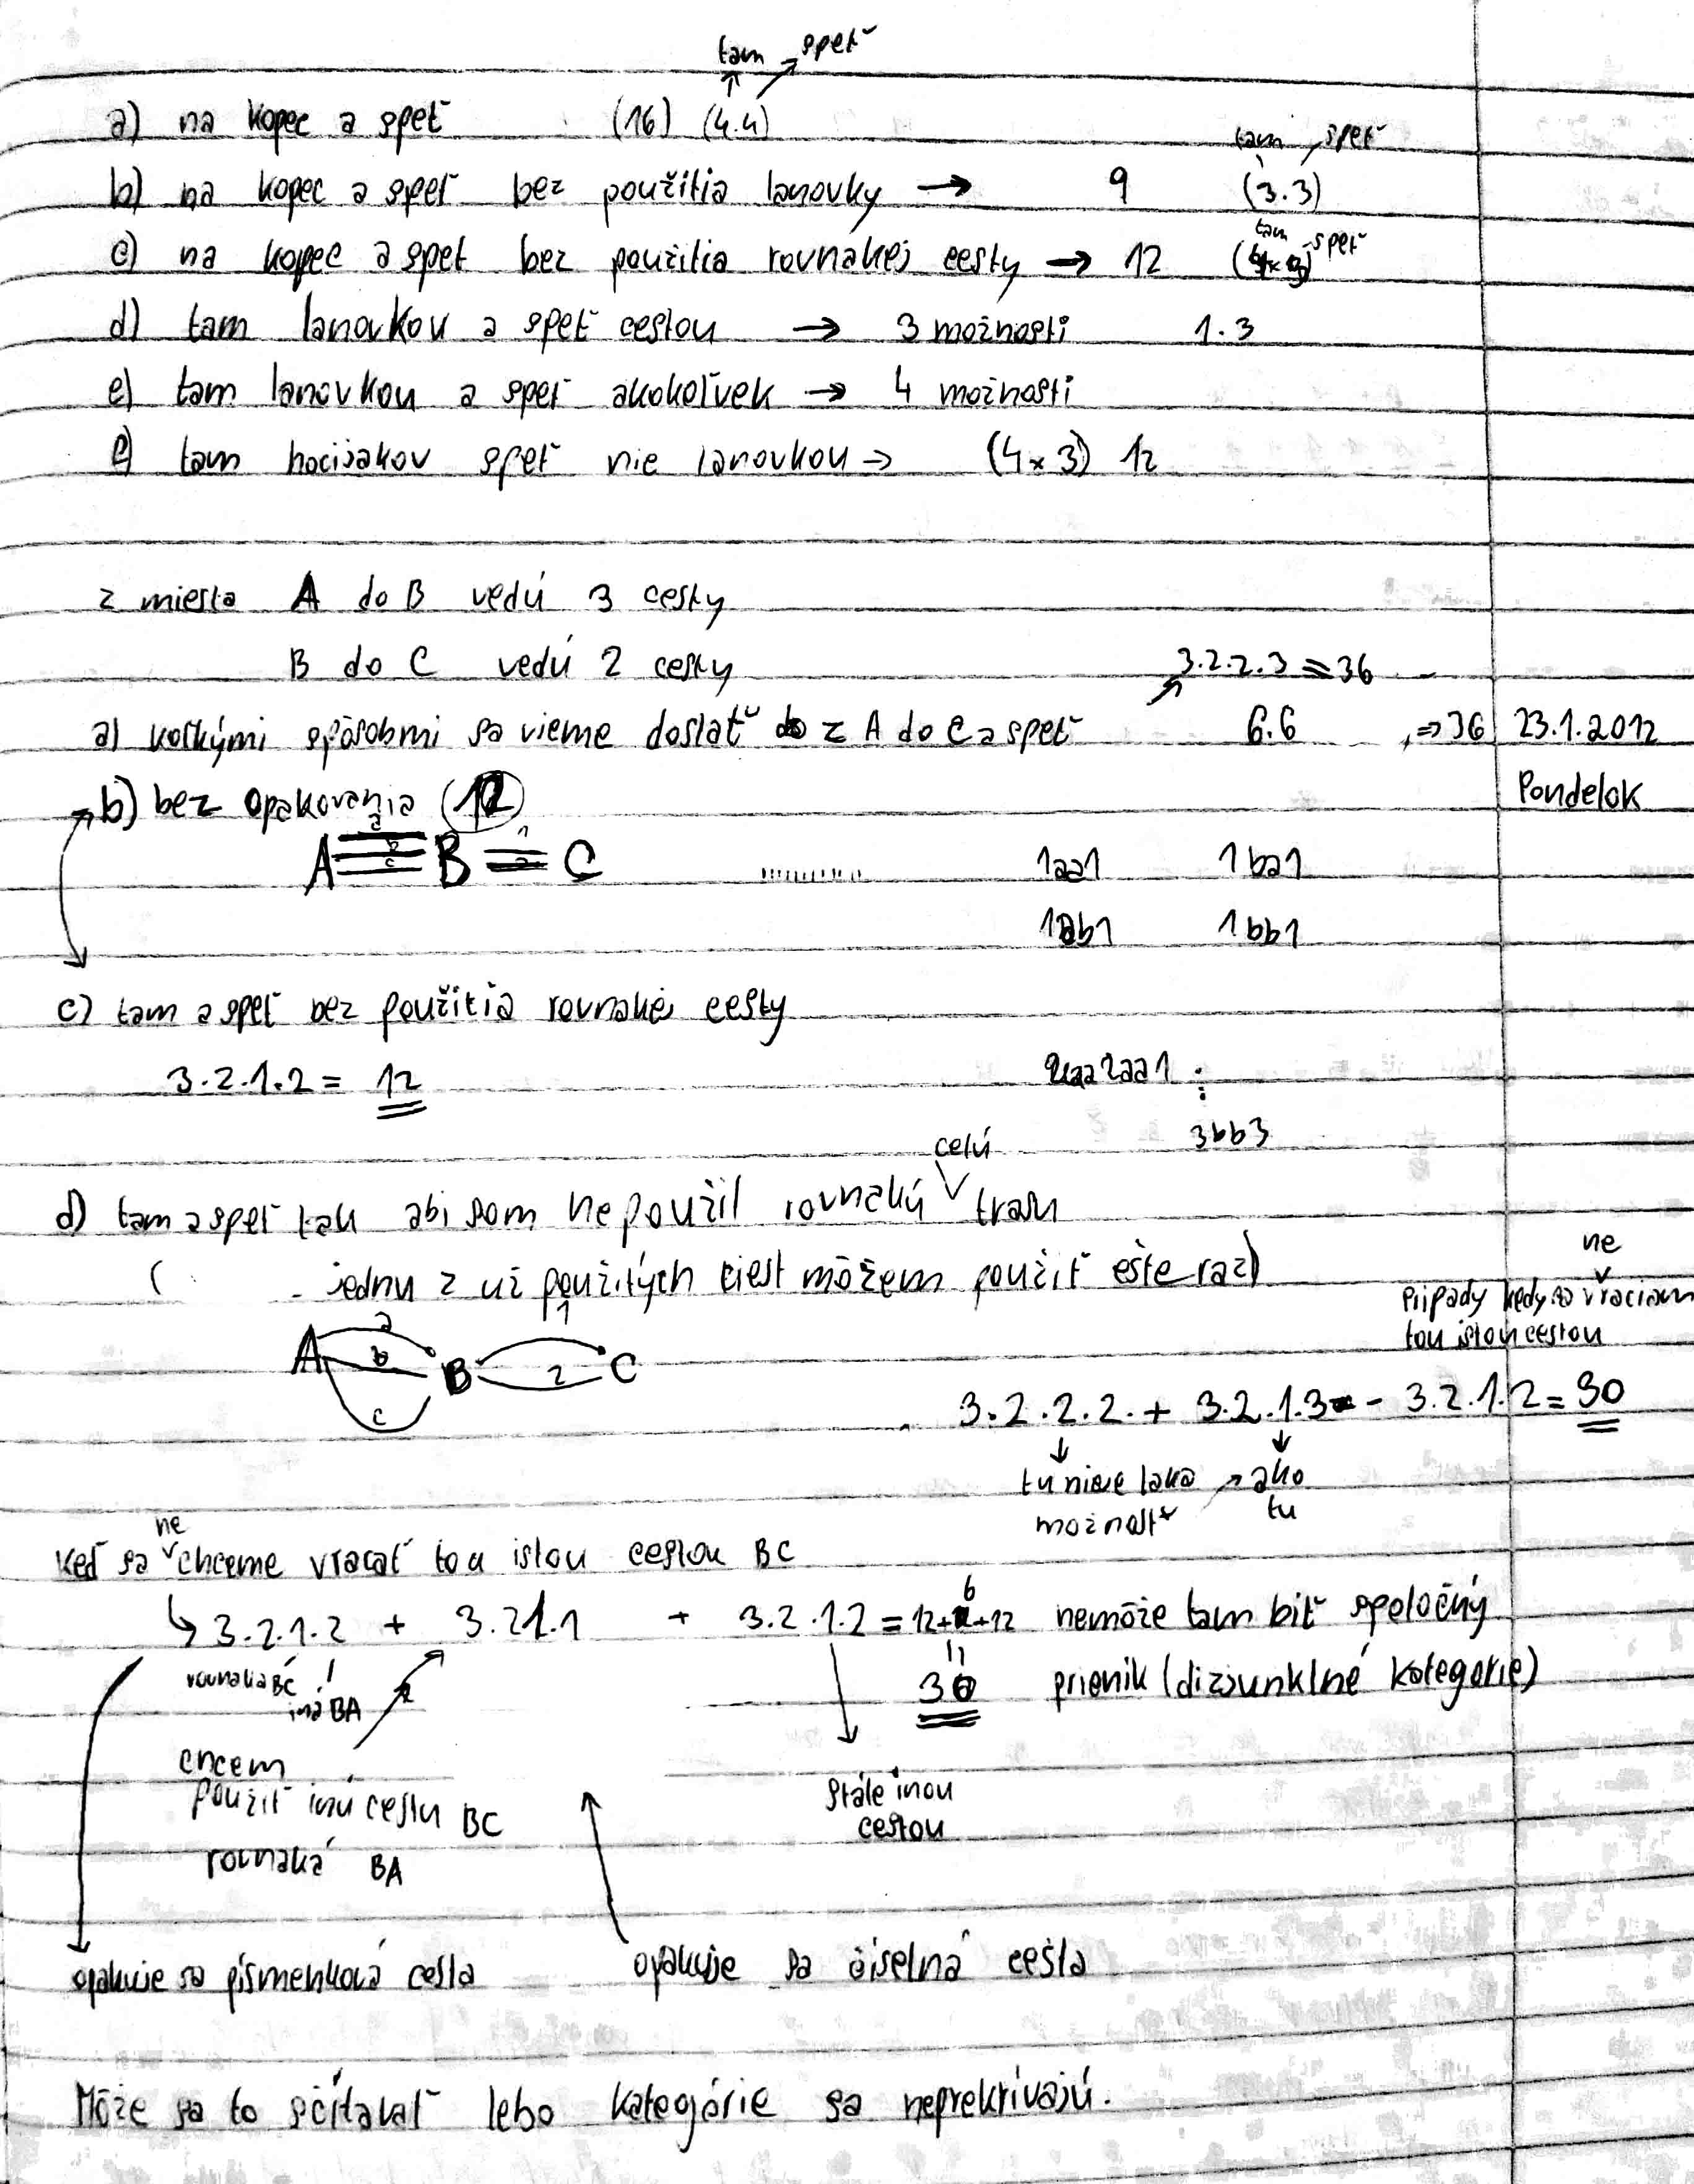 tam speť
a) na kopec a speť (16) (4.4)
tam speť
b) na kopec a speť bez použitia lanovky → 9 (3.3)
tam speť
c) na kopec a speť bez použitia rovnakej cesty → 12
d) tam lanovkou a speť cestou → 3 možnosti 1.3
e) tam lanovkou a speť akokoľvek → 4 možnosti
tam hocijakou speť nie lanovkou → (4x3) 12
z miesta A do B vedú 3 cesty
B do C vedú 2 cesty 3.2.2.3 = 36
a) koľkými spôsobmi sa vieme dostať z A do C a speť 6.6 ⇒ 36 23.1.2012
b) bez opakovania (12) Pondelok
a
b
c
1
2
A B C 1aa1 1ba1
1ab1 1bb1
c) tam a speť bez použitia rovnakej cesty
3.2.1.2 = 12 2aa1 :
3bb3
celú
d) tam a speť tak abi som nepoužil rovnakú trasu
ne
( - jednu z už použitých ciest môžem použiť ešte raz)
prípady kedy sa vraciam
tou istou cestou
a 1
A b B 2 C
c
3.2.2.2. + 3.2.1.3 - 3.2.1.2 = 30
tu nieje taká → ako
možnosť tu
ne
keď sa chceme vracať tou istou cestou BC
3.2.1.2 + 3.2.1.1 + 3.2.1.2 = 12+6+12 nemôže tam biť spoločný
rovnaká BC iná BA
30 prienik (dizjunktné kategórie)
chcem
použiť inú cestu BC
rovnaká BA
stále inou
cestou
opakuje sa písmenková cesta opakuje sa číselná cesta
Môže sa to sčítavať lebo kategórie sa neprekrívajú.